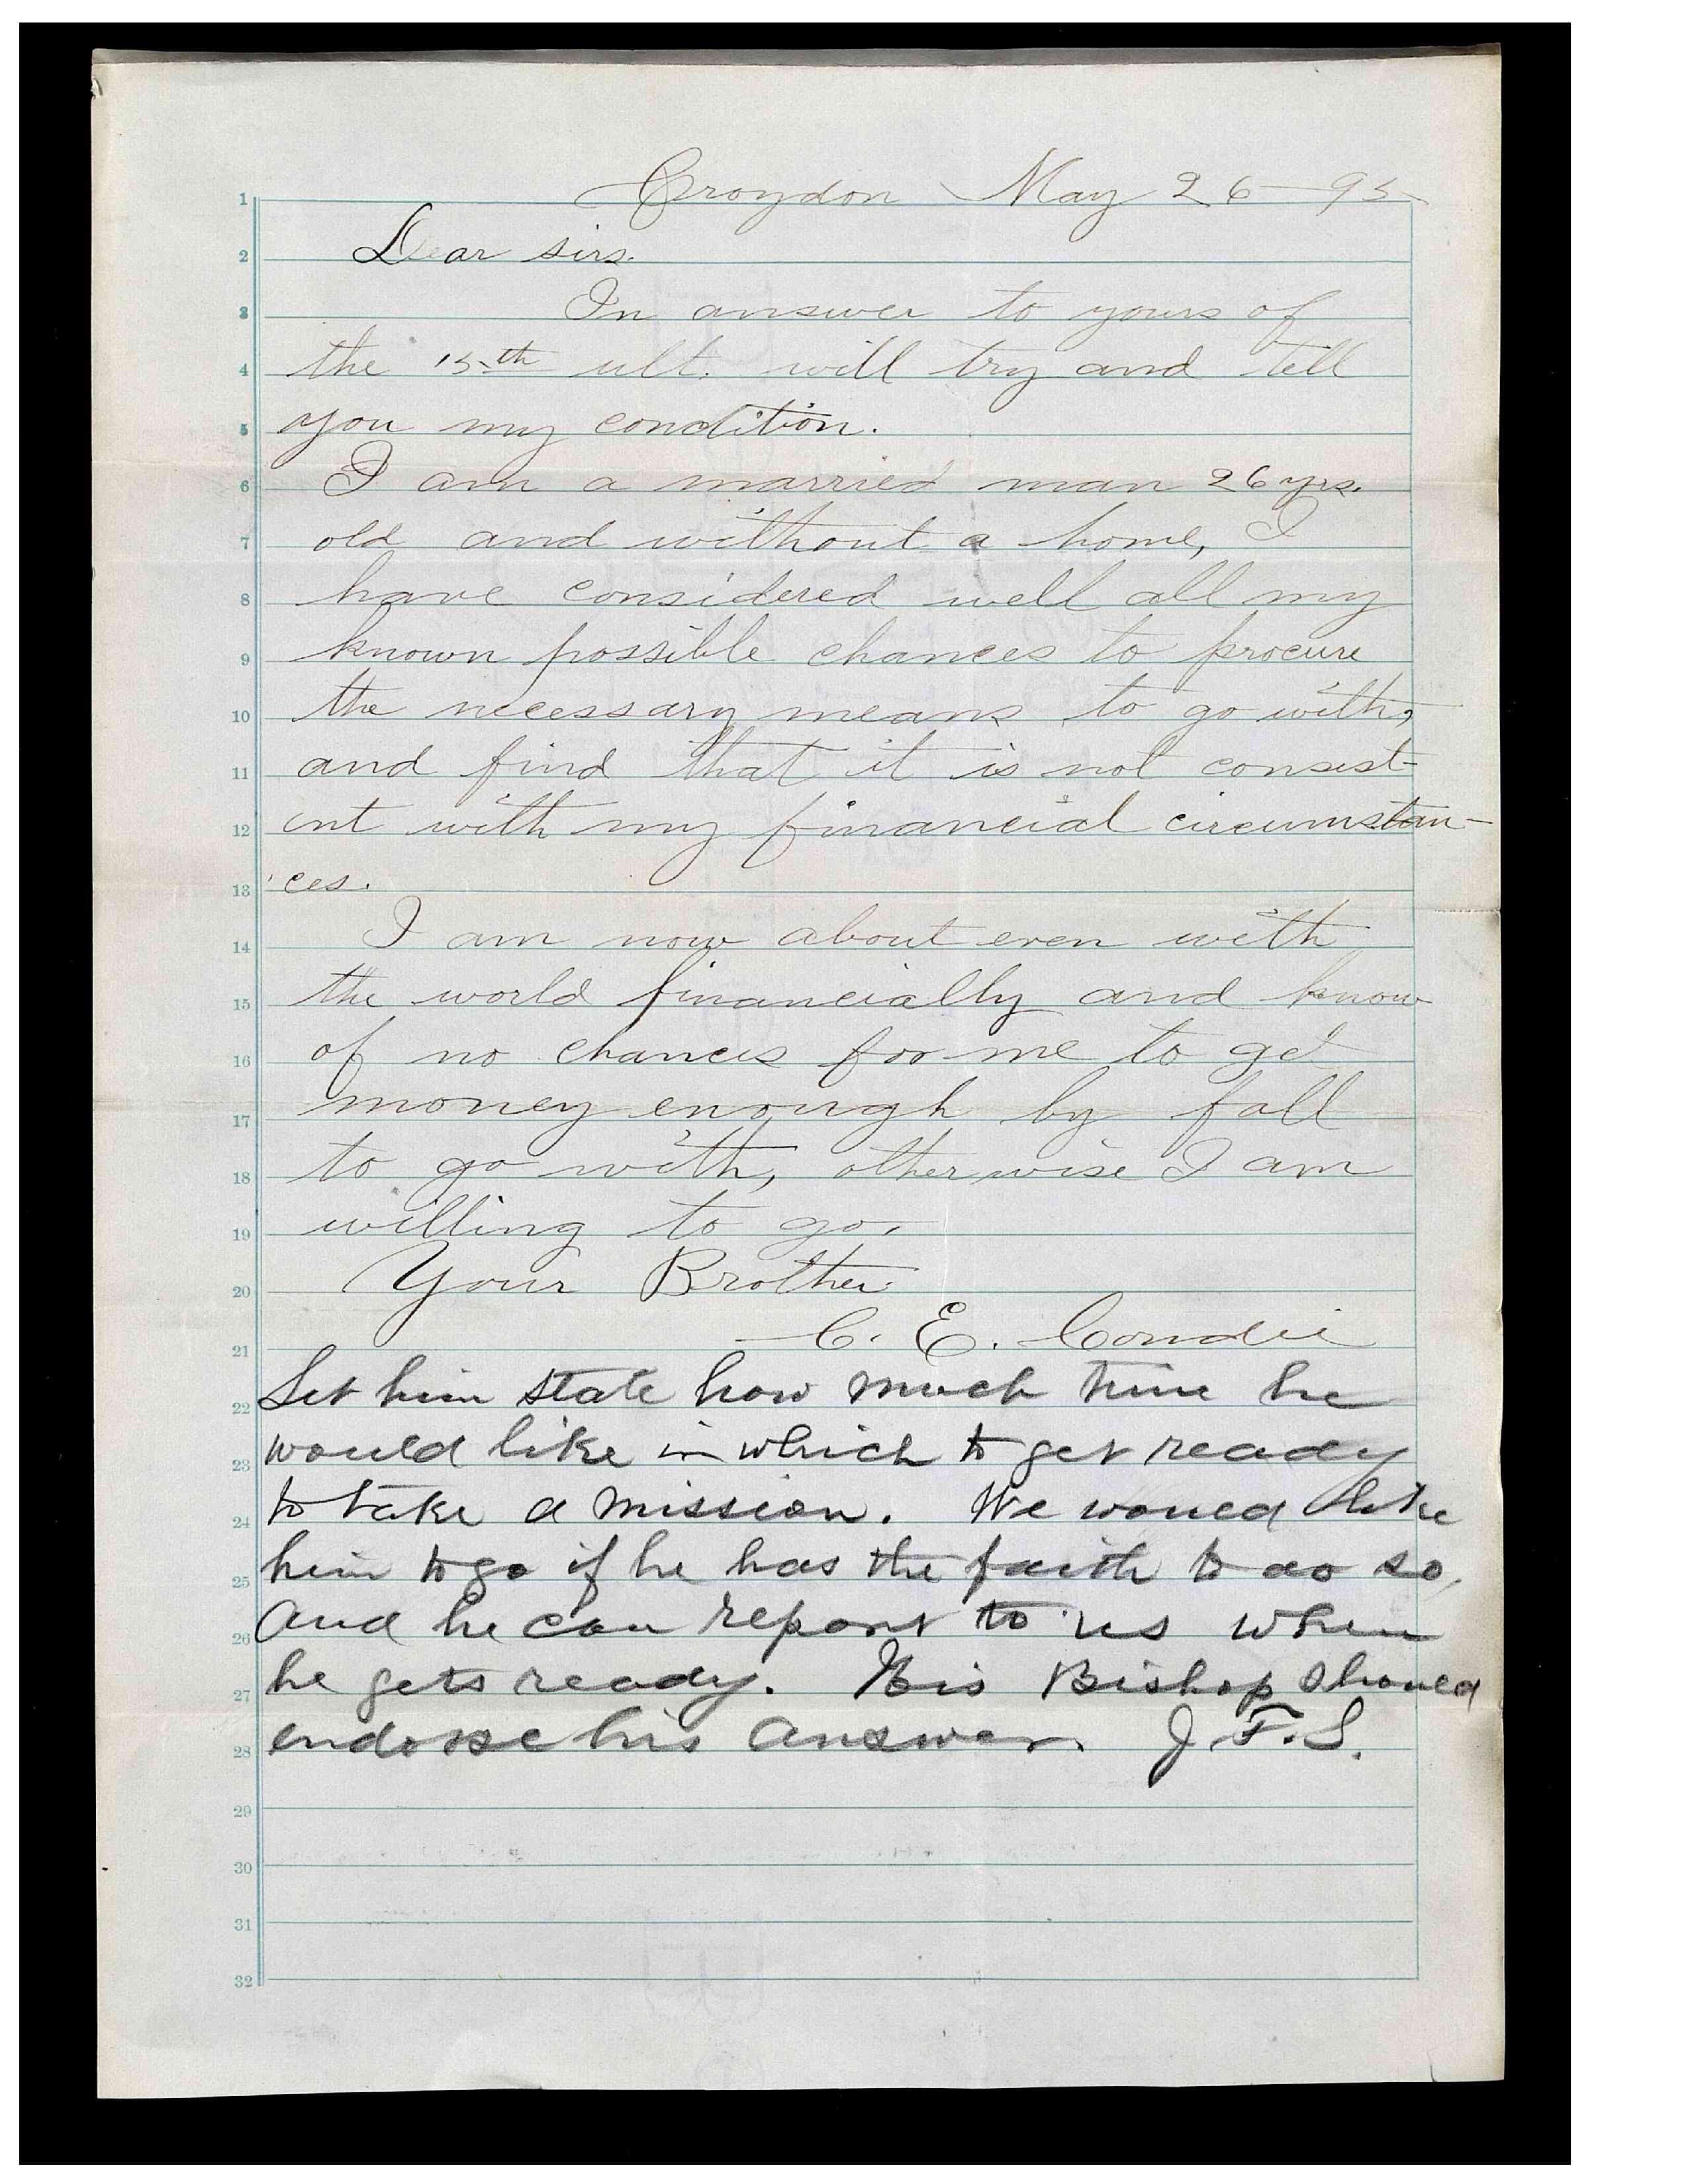 Croydon May 26 - 95
Dear sirs.
In answer to yours of
the 15th ult. will try and tell
you my condition.
I am a married man 26 yrs.
old and without a home, I
have considered well all my
known possible chances to procure
the necessary means to go with,
and find that it is not consist-
ent with my financial circumstan-
ces.
I am now about even with
the world financially and know
of no chances for me to get
money enough by fall
to go with, otherwise I am
willing to go.
Your Brother
C. E. Condie
Let him state how much time he
would like in which to get ready
to take a mission. We would like
him to go if he has the faith to do so,
and he can report to us when
he gets ready. His Bishop should
endorse his answer. J. F. S.